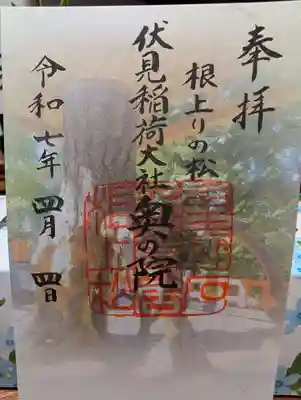 奉拝
根上りの松
伏見稲荷大社奥の院
令和七年 四月 四日